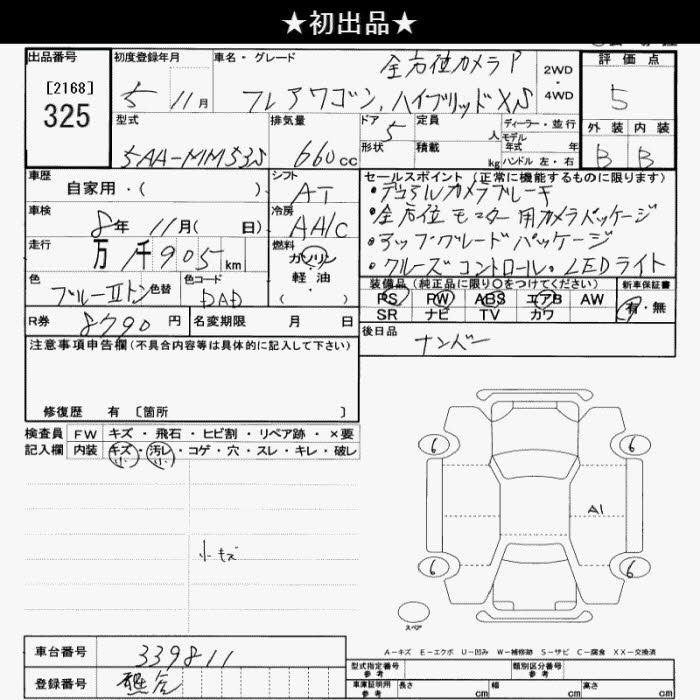 ★初出品★
出品番号
[2168]
325
初度登録年月
5 11月
車名・グレード
全方位カメラP
フレアワゴン,ハイブリッドXS
2WD
・
4WD
評価点
5
外装 内装
B B
型式
5AA-MM53S
排気量
660cc
ドア
5
形状
定員
人
積載
kg
ディーラー・並行
モデル
年式 年
ハンドル 左・右
車歴
自家用・( )
シフト
AT
車検
8年 11月( 日)
冷房
AA/C
走行
万 千905km
燃料
ガソリン
軽油
( )
色
ブルーⅡトン
色替
色コード
DAD
R券
8790円
名変期限 月 日
セールスポイント(正常に機能するものに限ります)
・デュアルカメラブレーキ
・全方位モニター用カメラパッケージ
・アップグレードパッケージ
・クルーズコントロール・LEDライト
装備品(純正品に限り〇をつけてください)
新車保証書
PS PW ABS エアB AW
SR ナビ TV カワ
有・無
後日品
ナンバー
注意事項申告欄(不具合内容等は具体的に記入して下さい)
修復歴 有 〔箇所 〕
検査員
記入欄
FW キズ・飛石・ヒビ割・リペア跡・×要
内装 キズ・汚レ・コゲ・穴・スレ・キレ・破レ
小 小
小キズ
6 6
A1
6 6
スペア
A-キズ E-エクボ U-凹み W-補修跡 S-サビ C-腐食 XX-交換済
車台番号
339811
登録番号
型式指定番号
参考
類別区分番号
参考
車庫証明用
参考
長さ cm
幅 cm
高さ cm